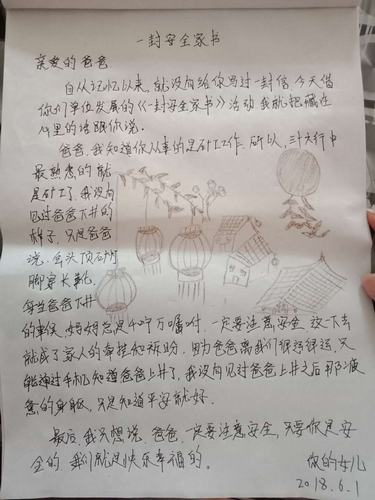 一封安全家书
亲爱的爸爸
自从记忆以来，就没有给你写过一封信，今天借
你们单位发展的《一封安全家书》活动我就把藏在
心里的话跟你说。
爸爸，我知道你从事的是矿工工作，所以，三十六行中
最熟悉的就
是矿工了，我没有
见过爸爸下井的
样子，只是爸爸
说，会头顶矿灯
脚穿长靴，
每当爸爸下井
的时候，妈妈总是千叮万嘱咐，一定要注意安全 这一下去
就成了家人的牵挂和祈盼，因为爸爸离我们很远很远，只
能通过手机知道爸爸上井了，我没有见过爸爸上井之后那疲
惫的身躯，只是知道平安就好。
最后，我只想说，爸爸，一定要注意安全，只要你是安
全的，我们就是快乐幸福的。
你的女儿
2018.6.1